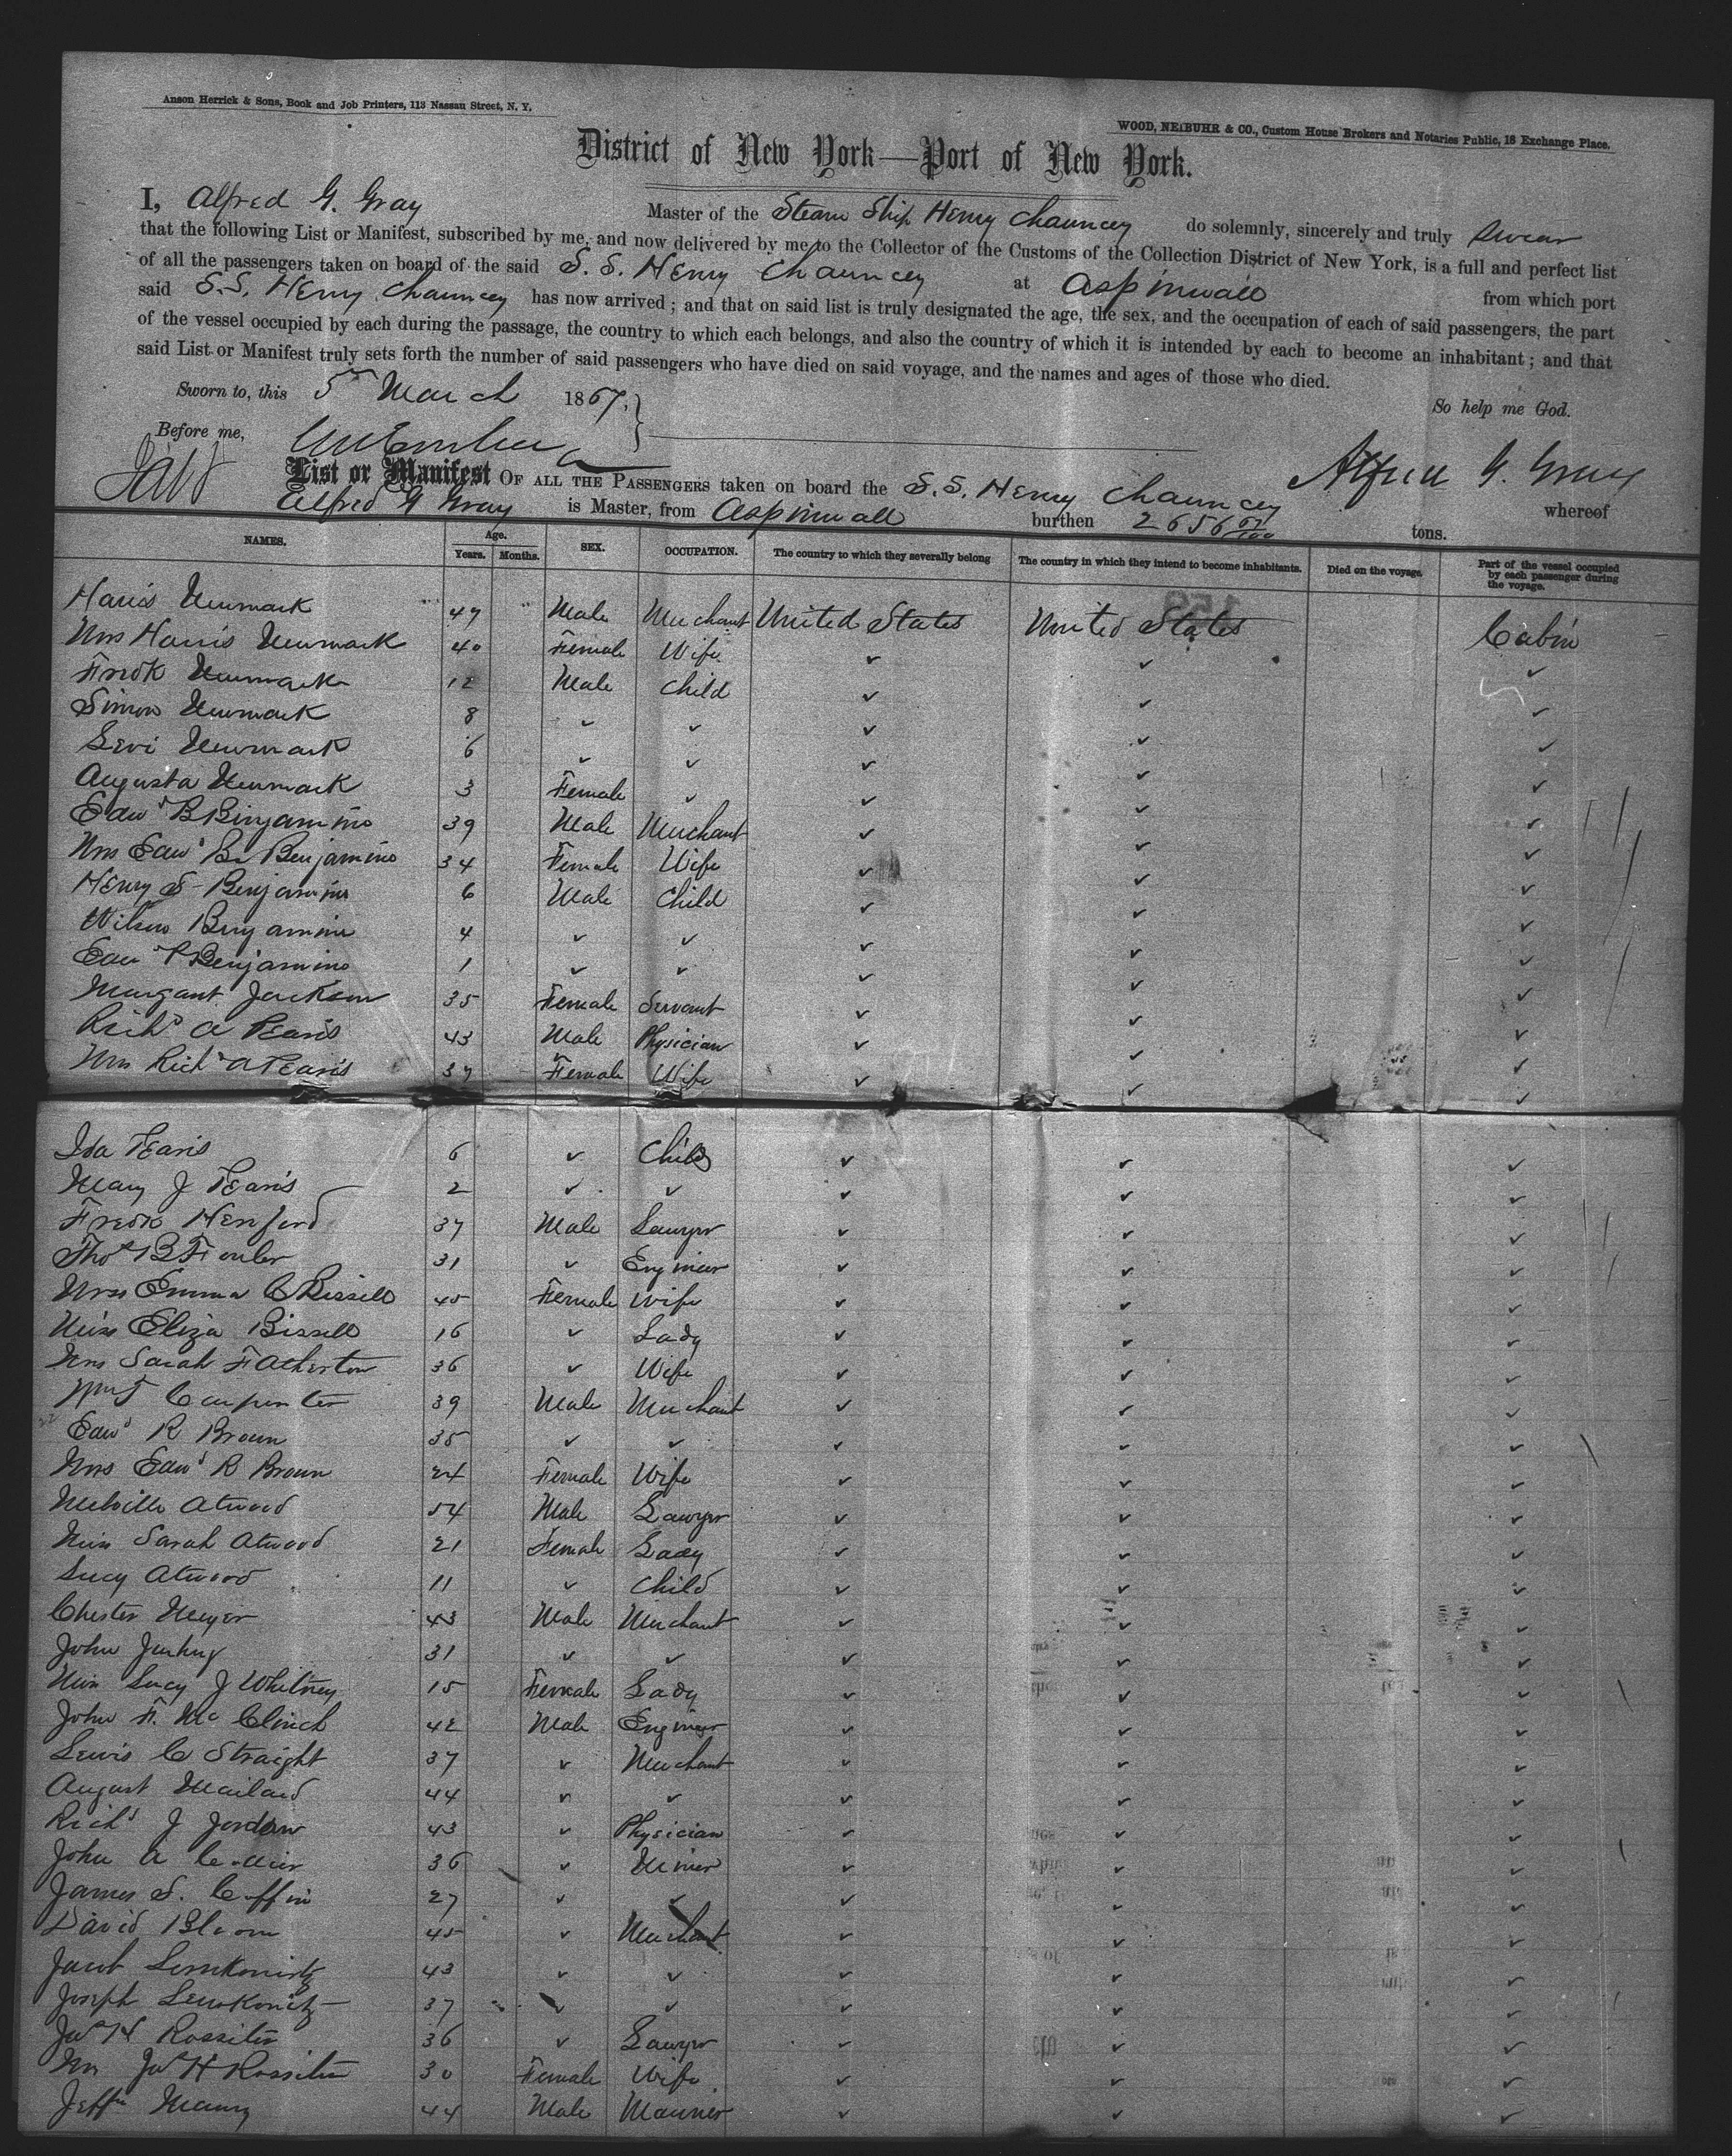 Anson Herrick & Sons, Book and Job Printers, 113 Nassau Street, N. Y.
WOOD, NEIBUHR & CO., Custom House Brokers and Notaries Public, 18 Exchange Place.
District of New York—Port of New York.
I, Alfred G. Gray Master of the Steam Ship Henry Chauncey do solemnly, sincerely and truly swear
that the following List or Manifest, subscribed by me, and now delivered by me to the Collector of the Customs of the Collection District of New York, is a full and perfect list
of all the passengers taken on board of the said S. S. Henry Chauncey at Aspinwall from which port
said S.S. Henry Chauncey has now arrived; and that on said list is truly designated the age, the sex, and the occupation of each of said passengers, the part
of the vessel occupied by each during the passage, the country to which each belongs, and also the country of which it is intended by each to become an inhabitant; and that
said List or Manifest truly sets forth the number of said passengers who have died on said voyage, and the names and ages of those who died.
Sworn to, this 5 March 1867, So help me God.
Before me,
Alfred G. Gray
List or Manifest OF ALL THE PASSENGERS taken on board the S. S. Henry Chauncey whereof
Alfred G Gray is Master, from Aspinwall burthen 2656 67/100 tons.
NAMES. Age. Years. Months. SEX. OCCUPATION. The country to which they severally belong The country in which they intend to become inhabitants. Died on the voyage. Part of the vessel occupied by each passenger during the voyage.
Harris Newmark 47 Male Merchant United States United States Cabin
Mrs Harris Newmark 40 Female Wife ✓ ✓ ✓
Fredk Newmark 12 Male Child ✓ ✓ ✓
Simon Newmark 8 ✓ ✓ ✓ ✓ ✓
Levi Newmark 6 ✓ ✓ ✓ ✓ ✓
Augusta Newmark 3 Female ✓ ✓ ✓ ✓
Edwd B Benjamins 39 Male Merchant ✓ ✓ ✓
Mrs Edwd B Benjamins 34 Female Wife ✓ ✓ ✓
Henry S Benjamins 6 Male Child ✓ ✓ ✓
Wilson Benjamins 4 ✓ ✓ ✓ ✓ ✓
Edwd Benjamins 1 ✓ ✓ ✓ ✓ ✓
Margaret Jackson 35 Female Servant ✓ ✓ ✓
Richd A 43 Male Physician ✓ ✓ ✓
Mrs Richd A 37 Female Wife ✓ ✓ ✓
Ida 6 ✓ Child ✓ ✓ ✓
Mary J 2 ✓ ✓ ✓ ✓ ✓
Fredk Hereford 37 Male Lawyer ✓ ✓ ✓
Thos B Fowler 31 ✓ Engineer ✓ ✓ ✓
Mrs Emma C Bissell 45 Female Wife ✓ ✓ ✓
Miss Eliza Bissell 16 ✓ Lady ✓ ✓ ✓
Mrs Sarah F Atherton 36 ✓ Wife ✓ ✓ ✓
Wm J Carpenter 39 Male Merchant ✓ ✓ ✓
Edwd R Brown 35 ✓ ✓ ✓ ✓ ✓
Mrs Edwd R Brown 24 Female Wife ✓ ✓ ✓
Melville Atwood 54 Male Lawyer ✓ ✓ ✓
Miss Sarah Atwood 21 Female Lady ✓ ✓ ✓
Lucy Atwood 11 ✓ Child ✓ ✓ ✓
Chester Meyer 43 Male Merchant ✓ ✓ ✓
John 31 ✓ ✓ ✓ ✓ ✓
Miss Lucy J Whitney 15 Female Lady ✓ ✓ ✓
John F. McClinch 42 Male Engineer ✓ ✓ ✓
Lewis C Straight 37 ✓ Merchant ✓ ✓ ✓
August Mailard 44 ✓ ✓ ✓ ✓ ✓
Richd J Jordan 43 ✓ Physician ✓ ✓ ✓
John A Collier 36 ✓ Miner ✓ ✓ ✓
James S. Coffin 27 ✓ ✓ ✓ ✓ ✓
David Bloom 45 ✓ Merchant ✓ ✓ ✓
Jacob 43 ✓ ✓ ✓ ✓ ✓
Joseph Lewkowitz 37 ✓ ✓ ✓ ✓ ✓
Jno H Rossiter 36 ✓ Lawyer ✓ ✓ ✓
Mrs Jno H Rossiter 30 Female Wife ✓ ✓ ✓
Jeffn Maury 44 Male Mariner ✓ ✓ ✓